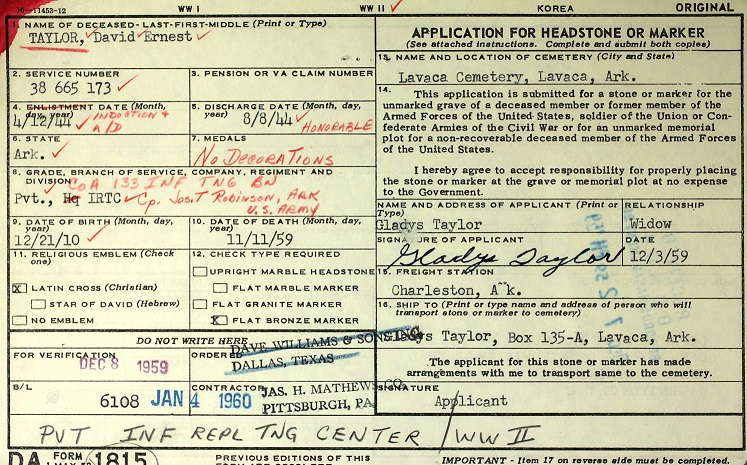 16—11453-12 WW I WW II KOREA ORIGINAL
1. NAME OF DECEASED-LAST-FIRST-MIDDLE (Print or Type)
TAYLOR, David Ernest
2. SERVICE NUMBER
38 665 173
3. PENSION OR VA CLAIM NUMBER
4. ENLISTMENT DATE (Month, day, year)
4/12/44 INDUCTION & A/D
5. DISCHARGE DATE (Month, day, year)
8/8/44 HONORABLE
6. STATE
Ark.
7. MEDALS
No DECORATIONS
8. GRADE, BRANCH OF SERVICE, COMPANY, REGIMENT AND DIVISION
Co A 133 INF TNG BN
Pvt., Hq IRTC Cp. Jos. T ROBINSON, ARK
U.S. ARMY
9. DATE OF BIRTH (Month, day, year)
12/21/10
10. DATE OF DEATH (Month, day, year)
11/11/59
11. RELIGIOUS EMBLEM (Check one)
X LATIN CROSS (Christian)
STAR OF DAVID (Hebrew)
NO EMBLEM
12. CHECK TYPE REQUIRED
UPRIGHT MARBLE HEADSTONE
FLAT MARBLE MARKER
FLAT GRANITE MARKER
X FLAT BRONZE MARKER
APPLICATION FOR HEADSTONE OR MARKER
(See attached instructions. Complete and submit both copies)
13. NAME AND LOCATION OF CEMETERY (City and State)
Lavaca Cemetery, Lavaca, Ark.
14.
This application is submitted for a stone or marker for the
unmarked grave of a deceased member or former member of the
Armed Forces of the United States, soldier of the Union or Con-
federate Armies of the Civil War or for an unmarked memorial
plot for a non-recoverable deceased member of the Armed Forces
of the United States.
I hereby agree to accept responsibility for properly placing
the stone or marker at the grave or memorial plot at no expense
to the Government.
NAME AND ADDRESS OF APPLICANT (Print or Type)
Gladys Taylor
RELATIONSHIP
Widow
SIGNATURE OF APPLICANT
Gladys Taylor
DATE
12/3/59
15. FREIGHT STATION
Charleston, A k.
16. SHIP TO (Print or type name and address of person who will
transport stone or marker to cemetery)
Gladys Taylor, Box 135-A, Lavaca, Ark.
The applicant for this stone or marker has made
arrangements with me to transport same to the cemetery.
SIGNATURE
Applicant
DO NOT WRITE HERE
FOR VERIFICATION
DEC 8 1959
ORDERED
DAVE WILLIAMS & SONS
DALLAS, TEXAS
B/L
6108 JAN 4 1960
CONTRACTOR
JAS. H. MATHEWS CO.
PITTSBURGH, PA.
PVT INF REPL TNG CENTER / WW II
DA FORM 1815
1 MAY 59
PREVIOUS EDITIONS OF THIS
IMPORTANT - Item 17 on reverse side must be completed.